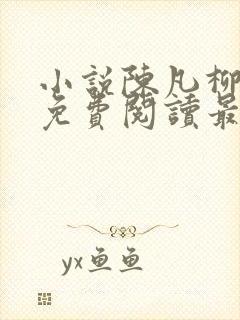 小說陳凡柳
免費閱讀最
yx鱼鱼